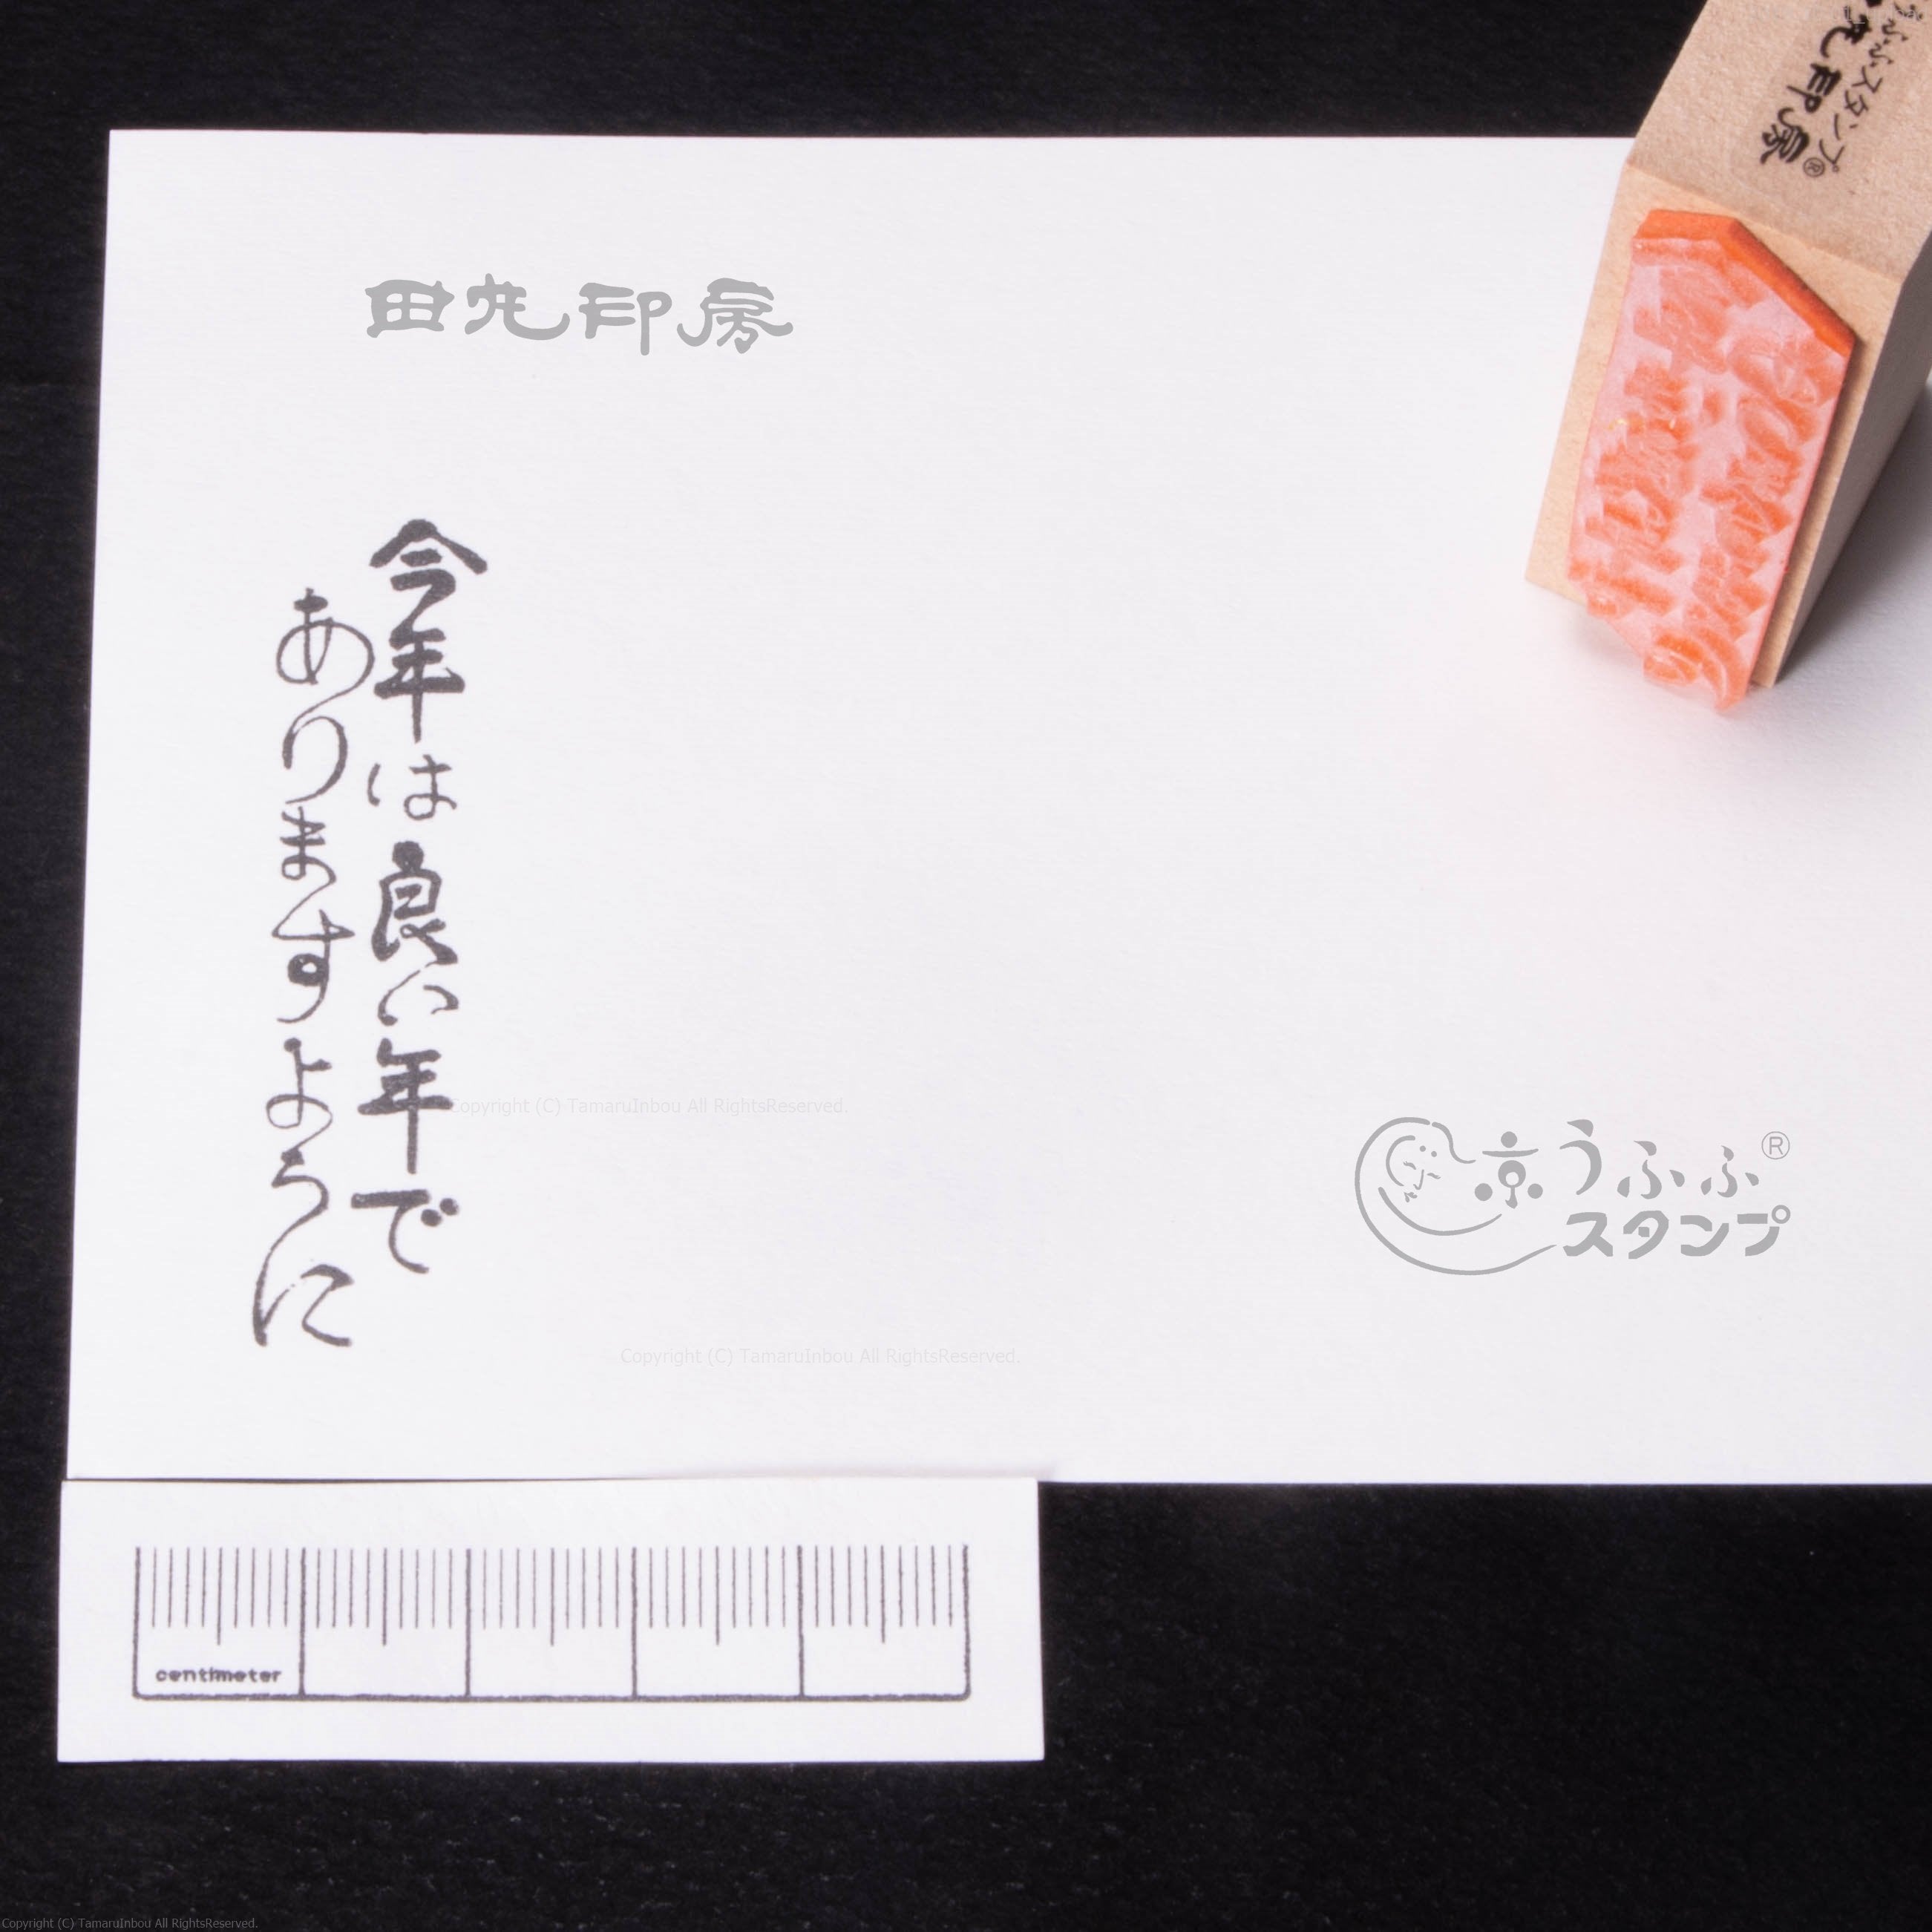 うふふスタンプ®
丸印房
田丸印房
今年は良い年で
ありますように
Copyright (C) TamaruInbou All RightsReserved.
京うふふ®
スタンプ
Copyright (C) TamaruInbou All RightsReserved.
centimeter
Copyright (C) TamaruInbou All RightsReserved.